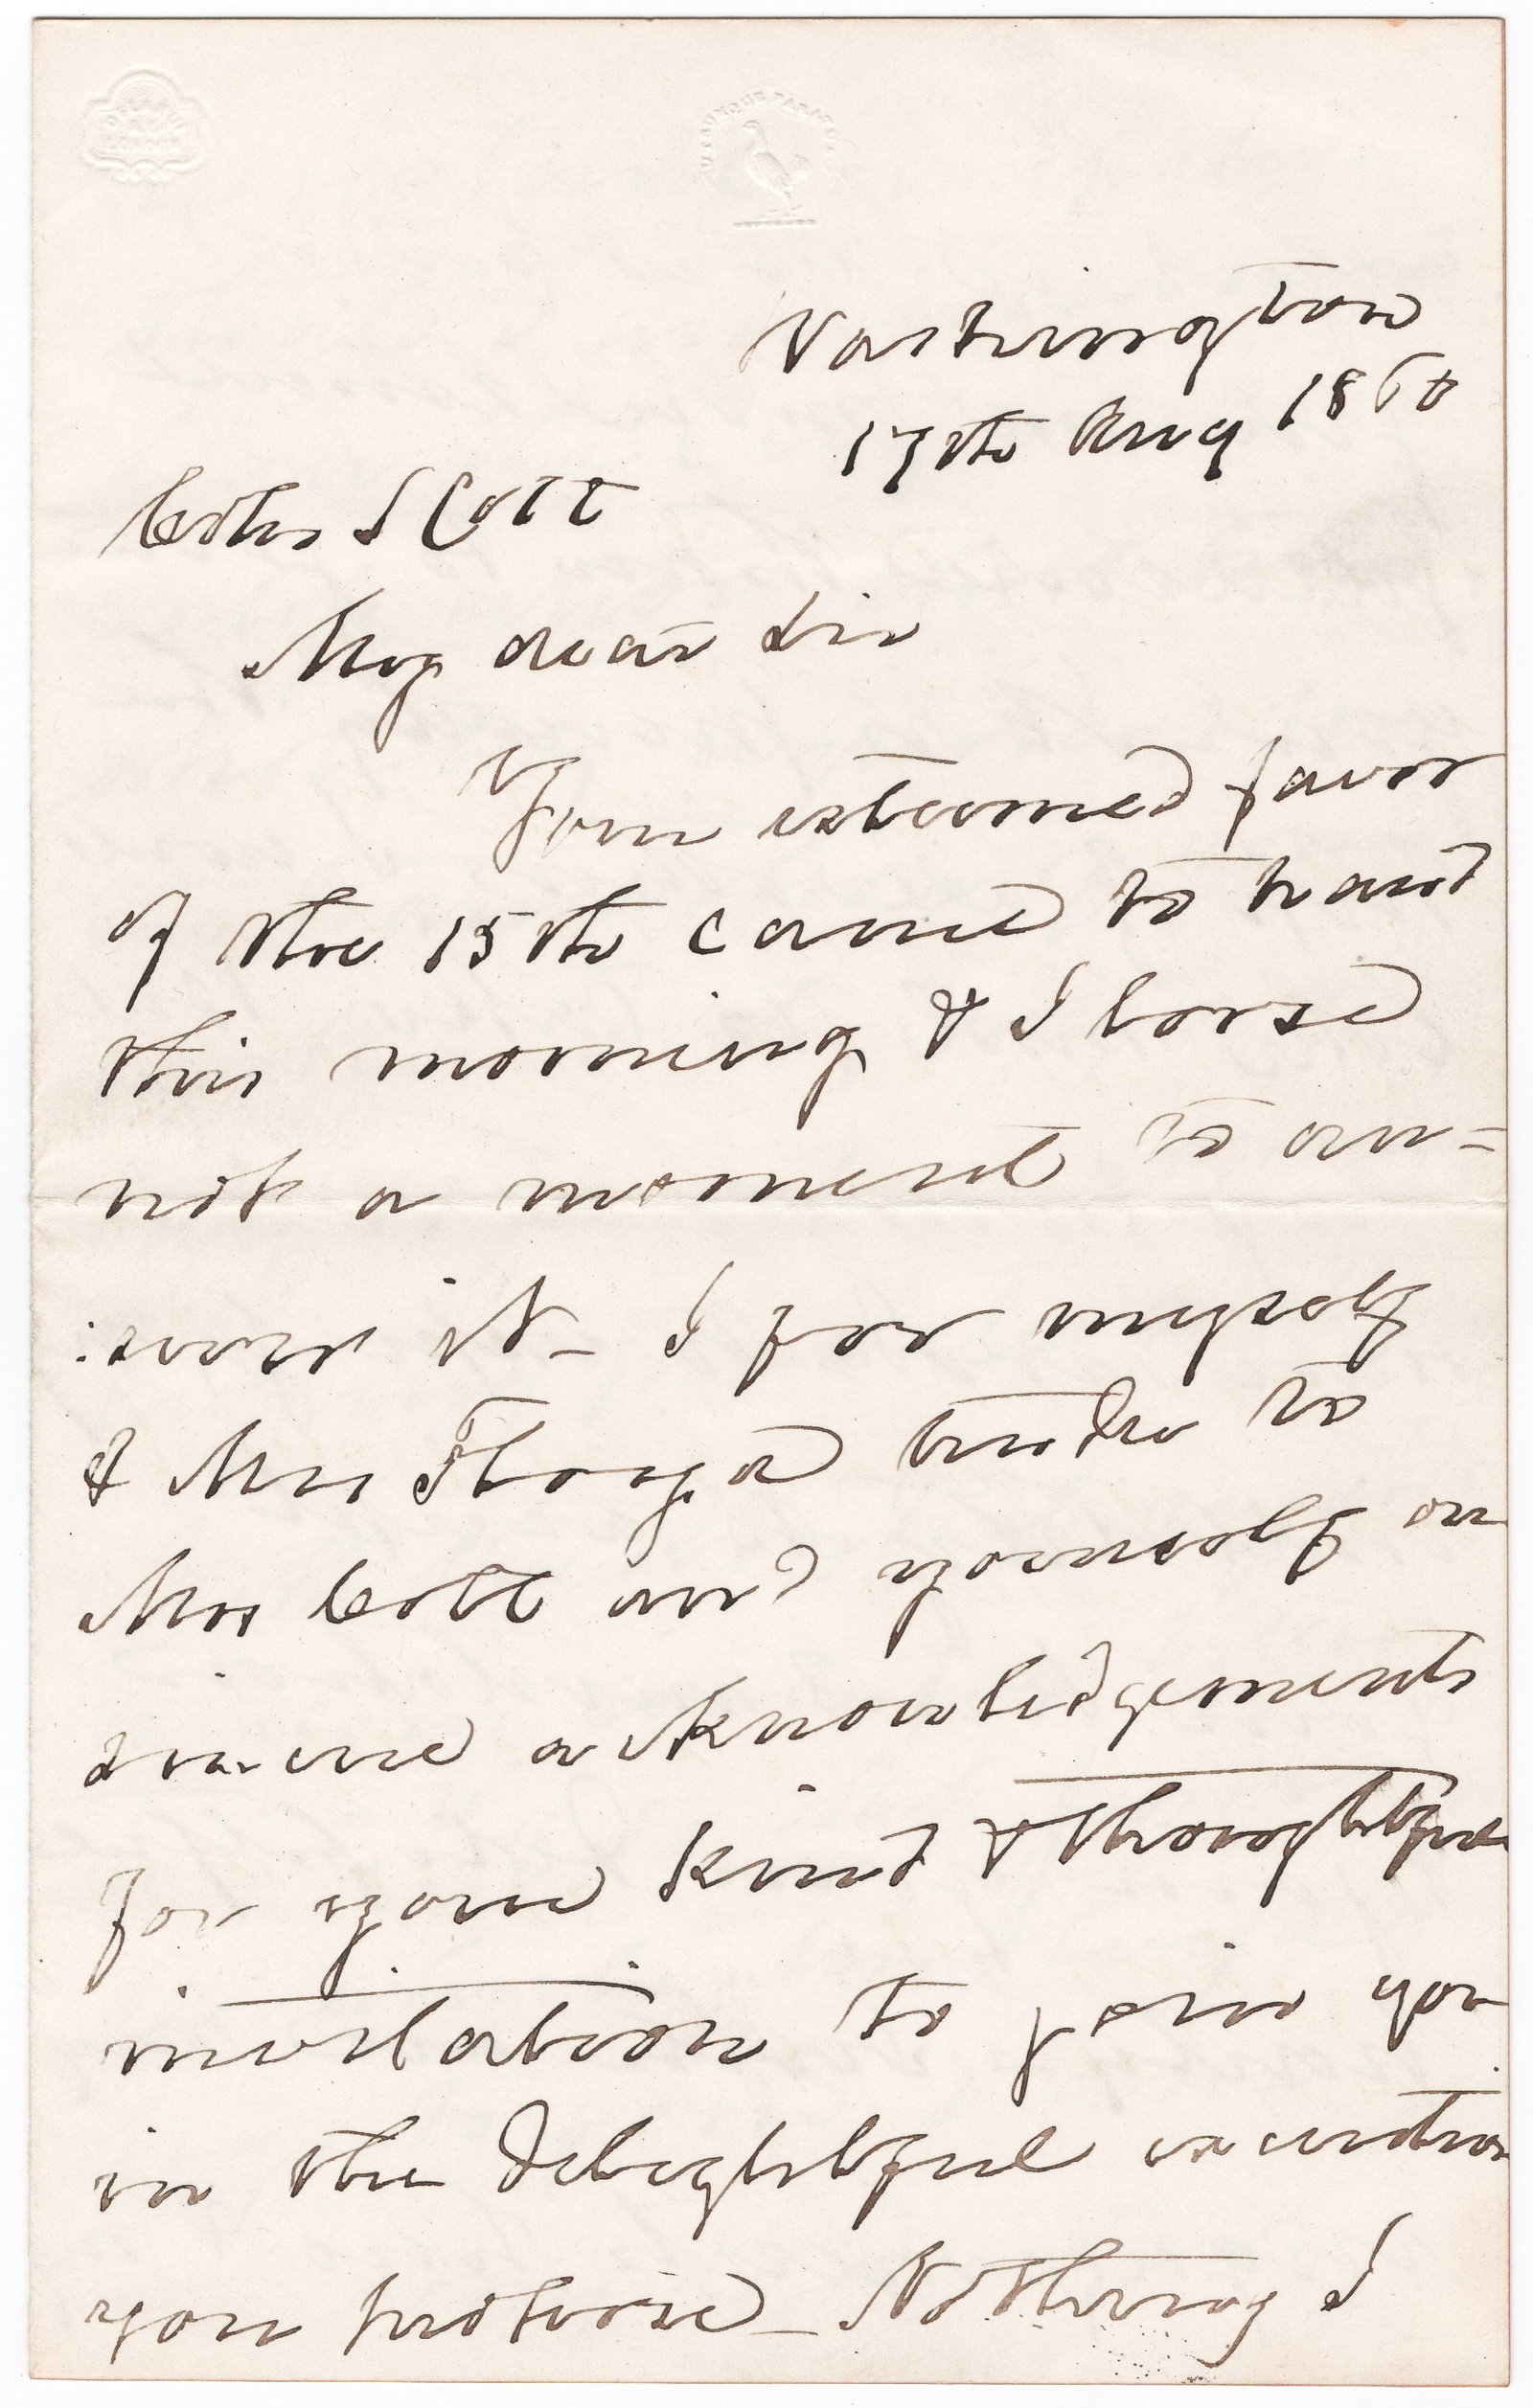 Washington
17th Aug 1860
Coln S Colt
My dear Sir
Your esteemed favor
of the 15th came to hand
this morning & I loose
not a moment to an-
:swer it - I for myself
& Mrs Floyd tender to
Mrs Colt and yourself our
sincere acknowledgements
for your kind & thoughtful
invitation to join you
in the delightful excursion
you propose - Nothing I